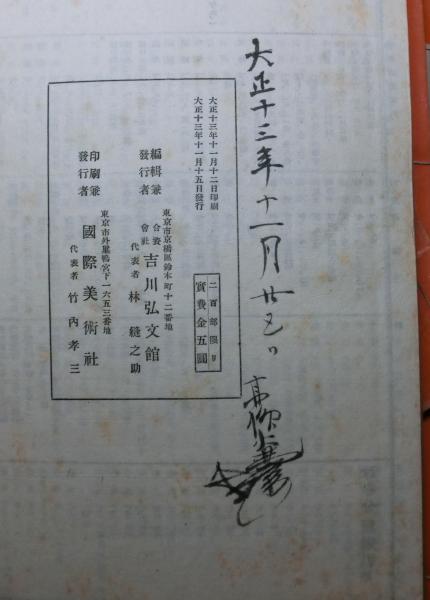 大正十三年十一月廿五日
大正十三年十一月十二日印刷
大正十三年十一月十五日發行
二百部限り
實費金五圓
東京市京橋區鈴木町十二番地
編輯兼發行者
合資會社 吉川弘文館
代表者 林縫之助
東京市外巢鴨宮下一六五三番地
印刷兼發行者
國際美術社
代表者 竹内孝三